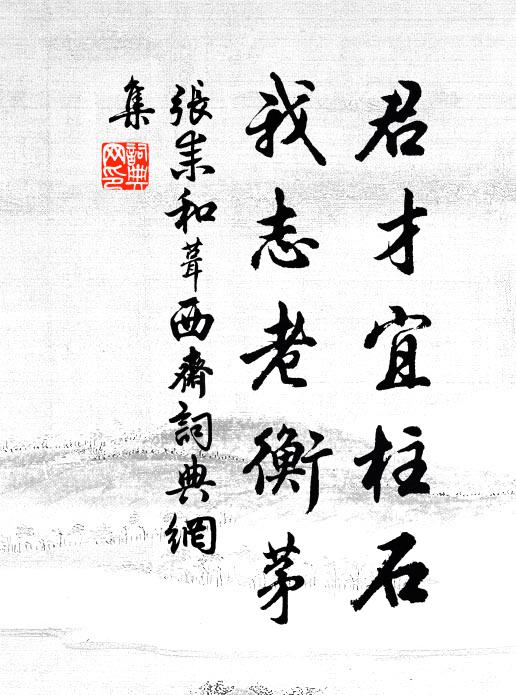 君才宜柱石
我志老衡茅
張耒和葺西齋詞典網
集
詞典
网印